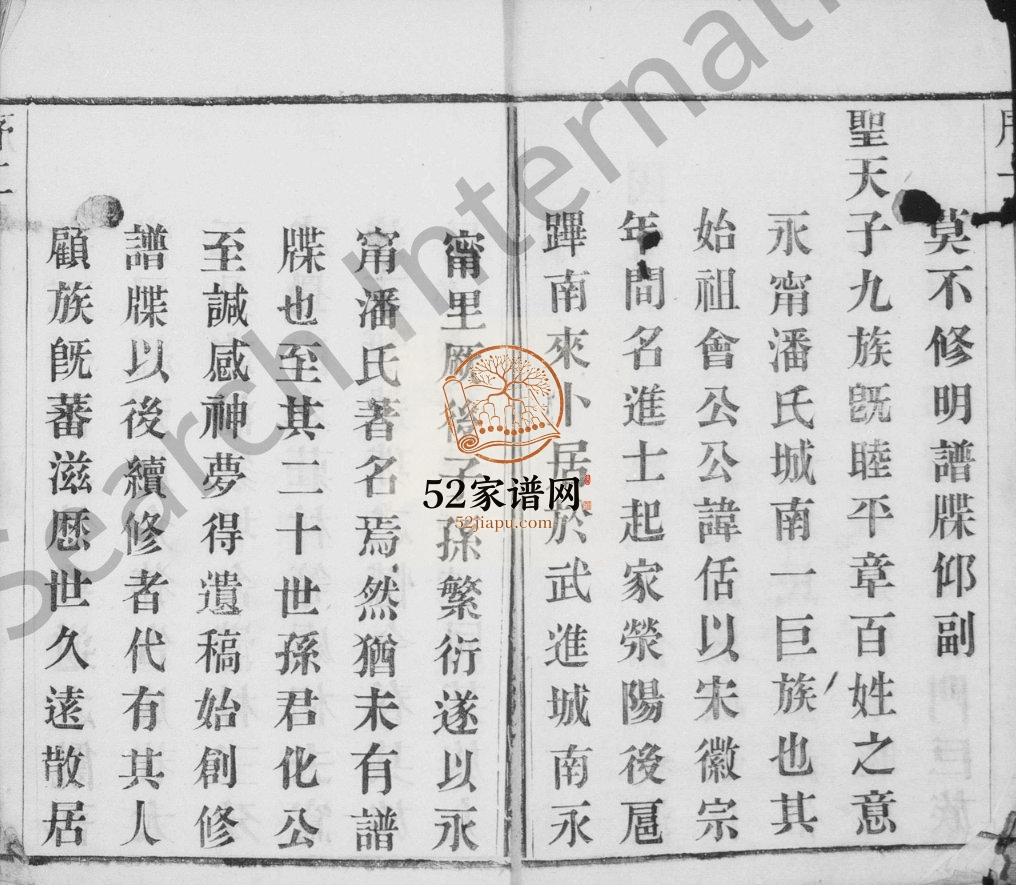 莫不修明譜牒仰副
聖天子九族旣睦平章百姓之意
永甯潘氏城南一巨族也其
始祖會公公諱佸以宋徽宗
年間名進士起家滎陽後扈
蹕南來卜居於武進城南永
甯里厥後子孫繁衍遂以永
甯潘氏著名焉然猶未有譜
牒也至其二十世孫君化公
至諴感神夢得遺稿始創修
譜牒以後續修者代有其人
顧族旣蕃滋歷世久遠散居
序二
Search Internati
52家谱网
52jiapu.com